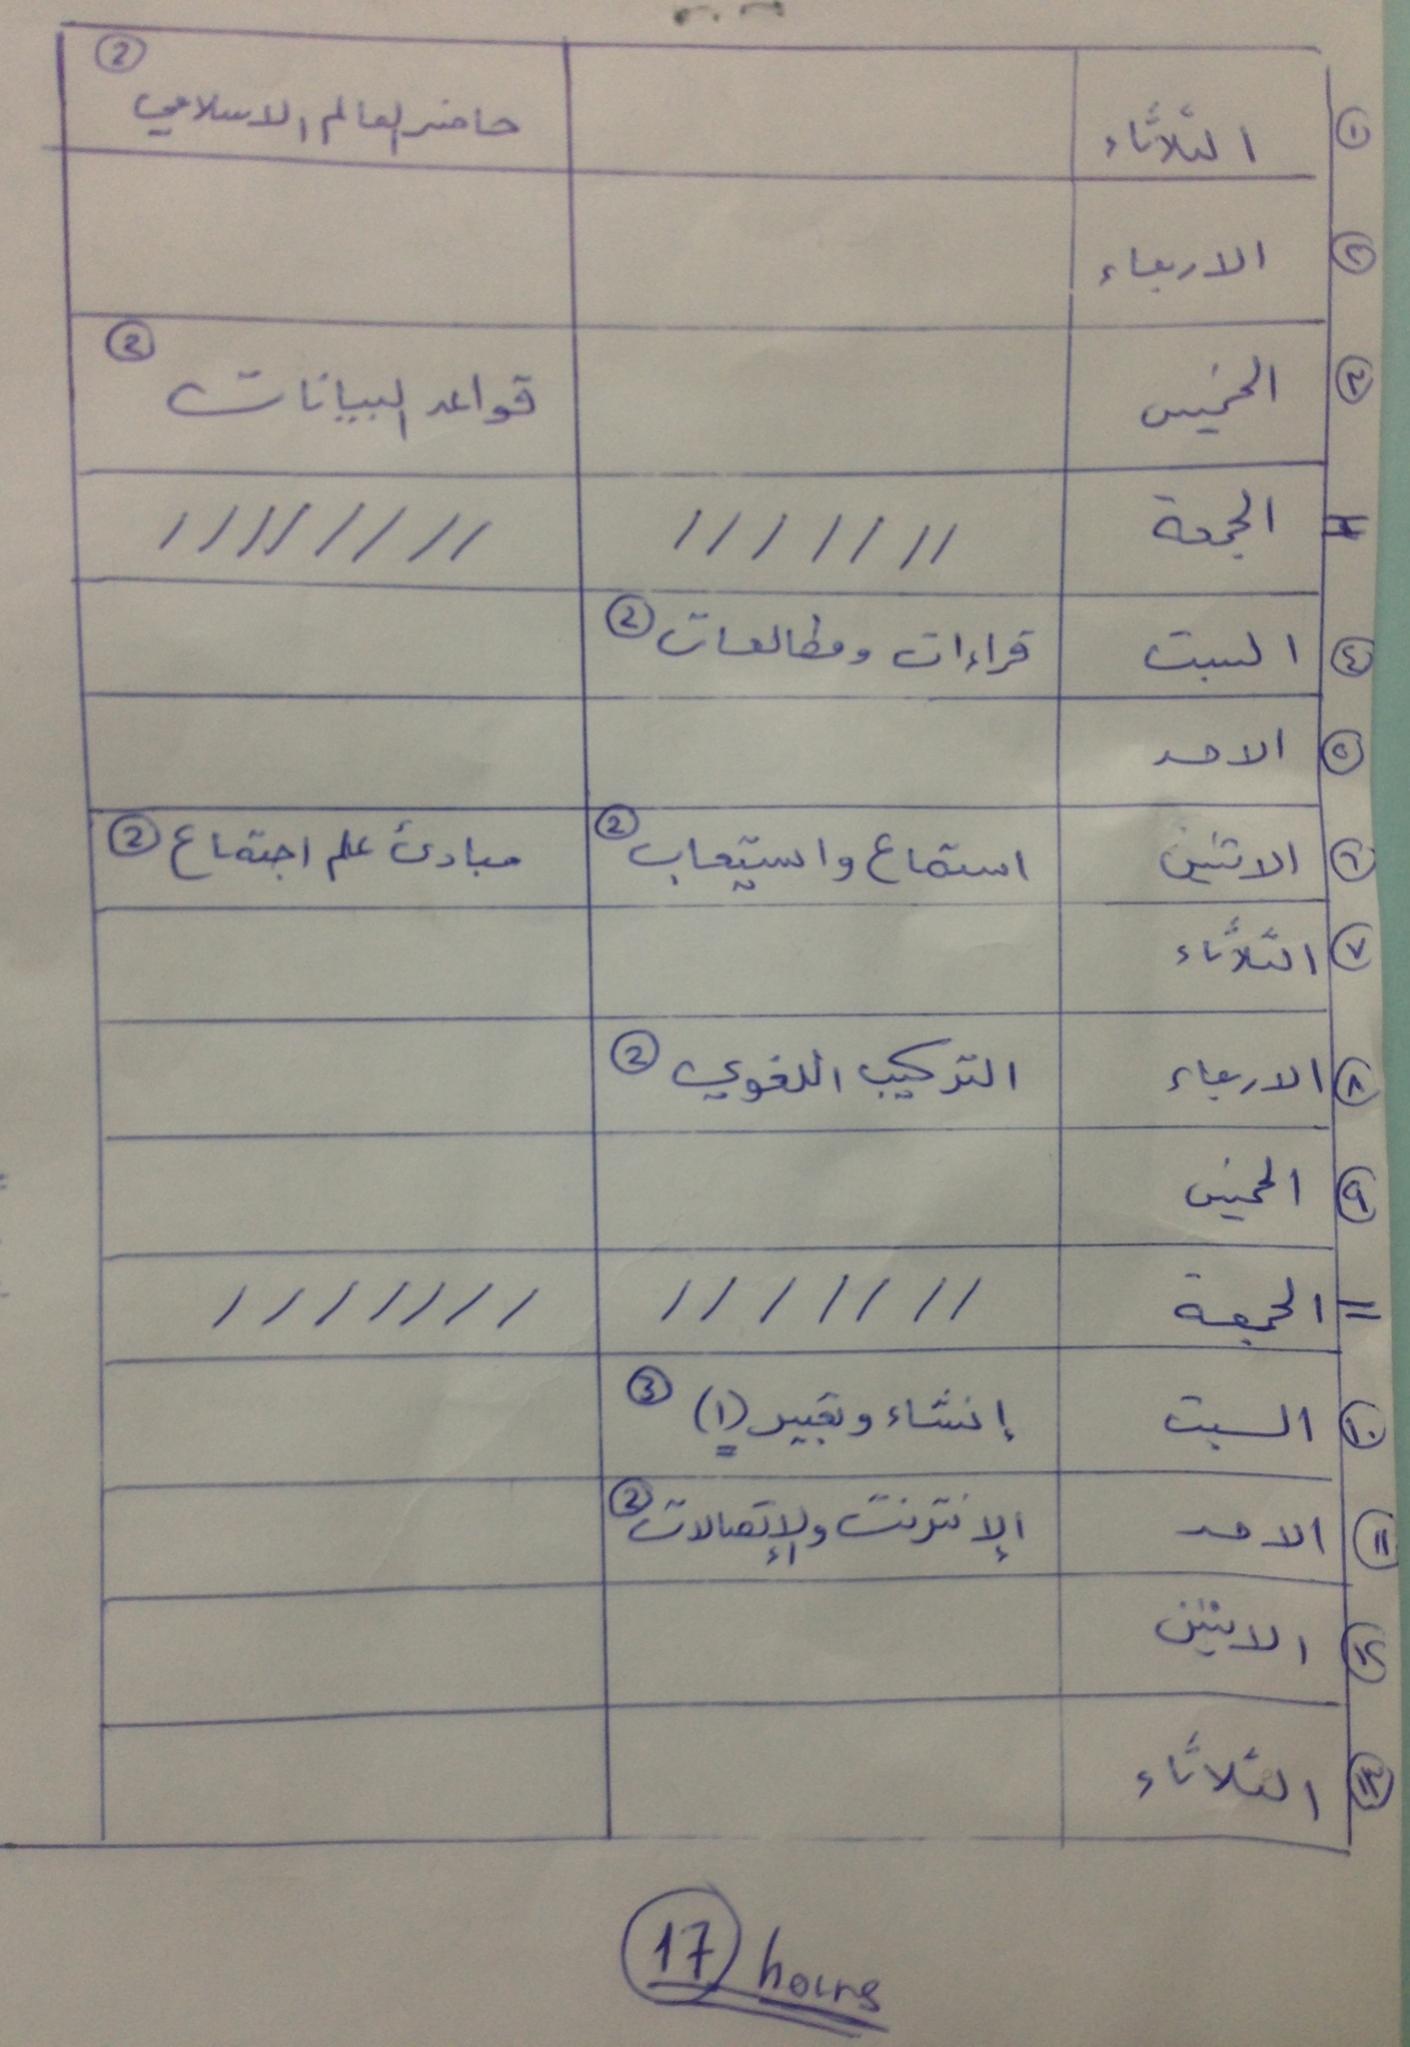 ١ الثلاثاء حاضر العالم الاسلامي 2
٢ الاربعاء
٣ الخميس قواعد البيانات 2
= الجمعة / / / / / / / / / / / / / / /
٤ السبت قراءات ومطالعات 2
٥ الاحد
٦ الاثنين استماع واستيعاب 2 مبادئ علم اجتماع 2
٧ الثلاثاء
٨ الاربعاء التركيب اللغوي 2
٩ الخميس
= الجمعة / / / / / / / / / / / / / /
١٠ السبت إنشاء وتعبير (١) 3
١١ الاحد الإنترنت والإتصالات 2
١٢ الاثنين
١٣ الثلاثاء
17 hours